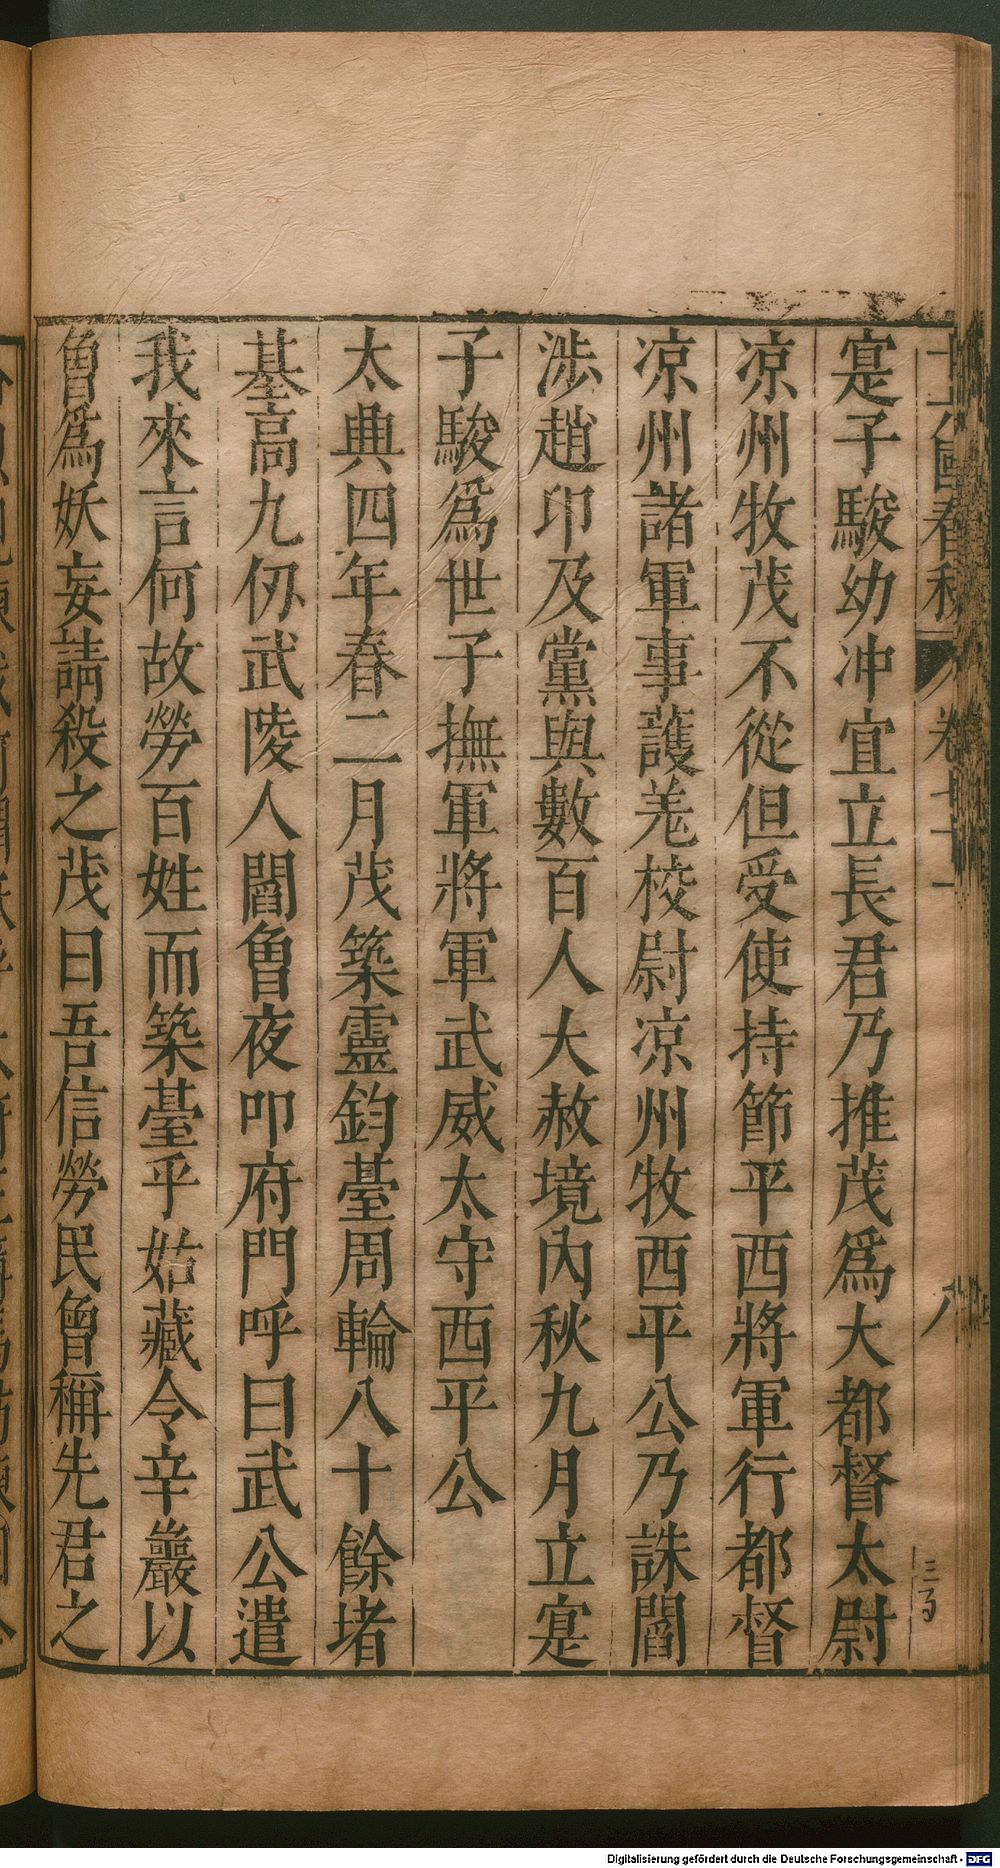 十六國春秋 卷七十一 八
寔子駿幼冲宜立長君乃推茂爲大都督太尉
凉州牧茂不從但受使持節平西將軍行都督
凉州諸軍事護羌校尉凉州牧西平公乃誅閻
渉趙卬及黨與數百人大赦境內秋九月立寔
子駿爲世子撫軍將軍武威太守西平公
太興四年春二月茂築靈鈞臺周輪八十餘堵
基高九仭武陵人閻曾夜叩府門呼曰武公遣
我來言何故勞百姓而築臺乎姑藏令辛巖以
曾爲妖妄請殺之茂曰吾信勞民曾稱先君之
Digitalisierung gefördert durch die Deutsche Forschungsgemeinschaft - DFG